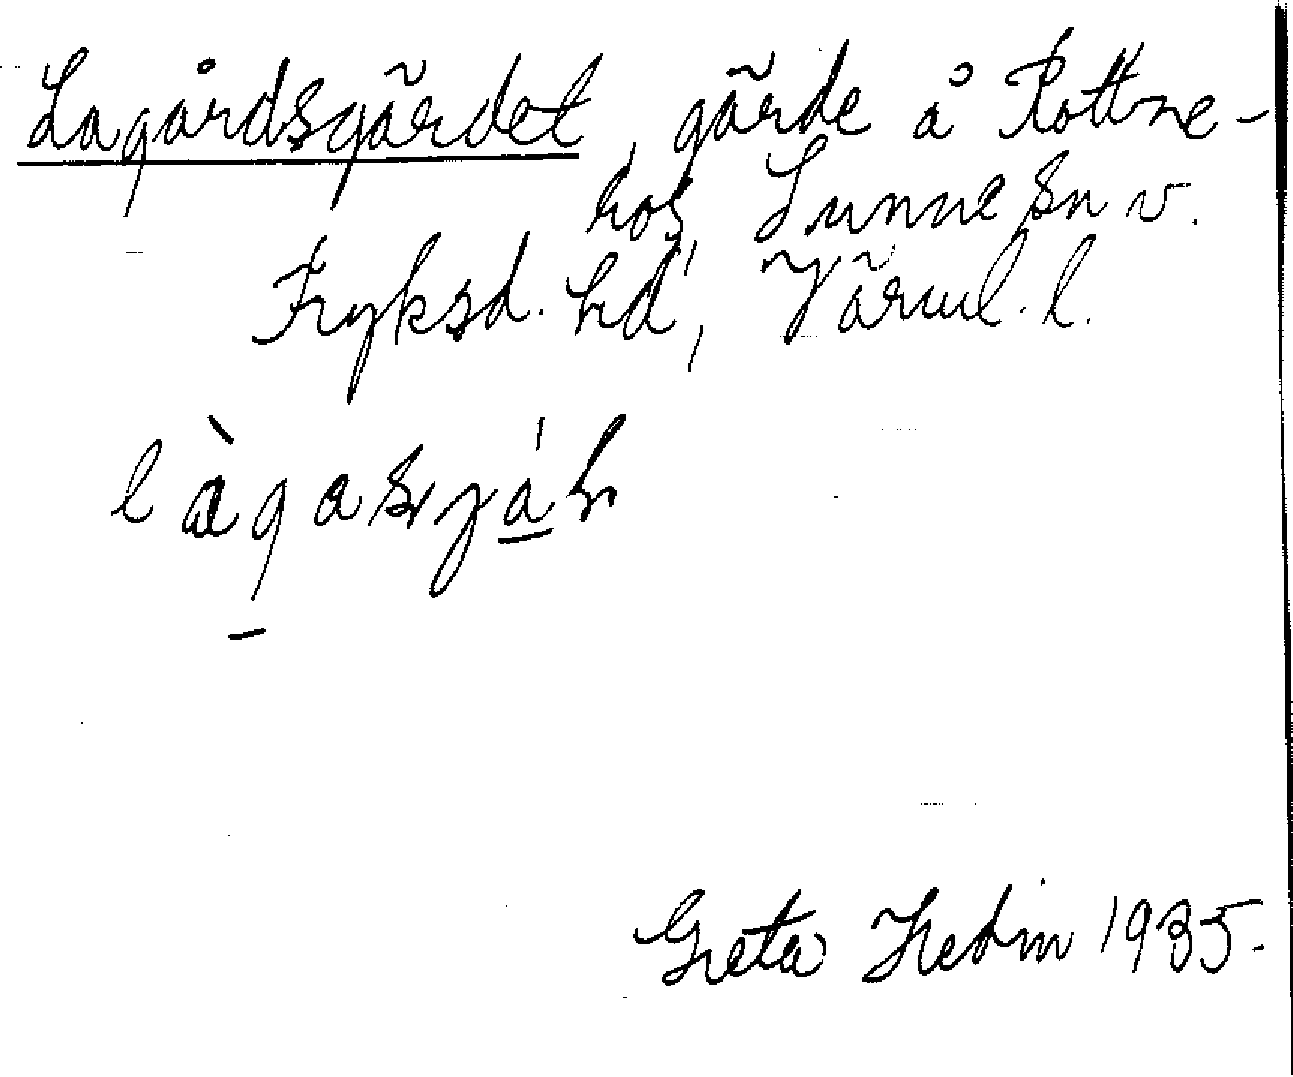 Lagårdsgärdet, gärde å Rottne-
ros, Sunne sn v.
Fryksd. hd, Värml. l.
Greta Hedin 1935.